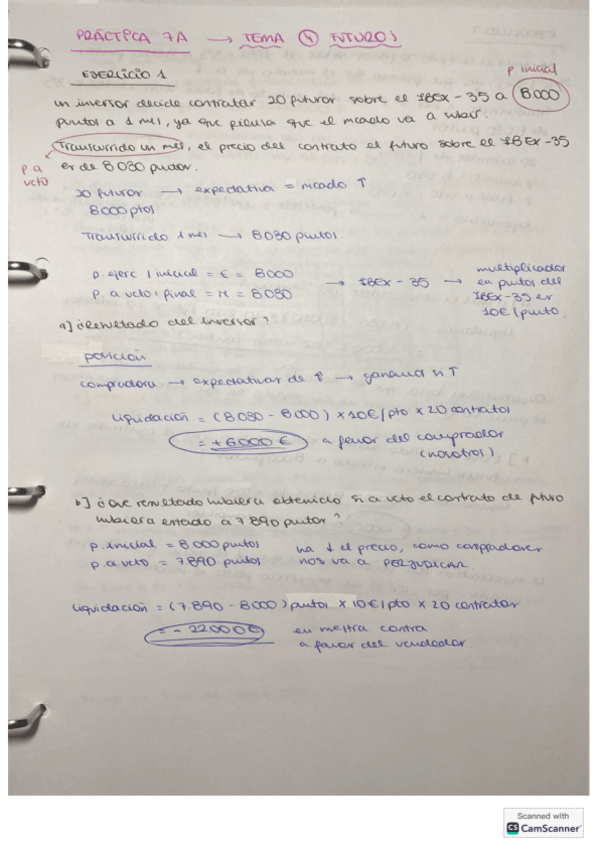 PRÁCTICA 7A → TEMA 4 FUTUROS
EJERCICIO 1
p. inicial
un inversor decide contratar 20 futuros sobre el IBEX-35 a 8000
puntos a 1 mes, ya que piensa que el mcado va a subir.
Transcurrido un mes, el precio del contrato el futuro sobre el IBEX-35
es de 8030 puntos.
p a vcto
20 futuros → expectativa = mcado ↑
8000 ptos
Transcurrido 1 mes → 8030 puntos
p. ejerc / inicial = € = 8000
p. a vcto; final = M = 8030
→ IBEX-35 →
multiplicador
en puntos del
IBEX-35 es
10€/punto.
a] ¿Resultado del inversor?
posición
compradora → expectativas de ↑ → ganancia si ↑
Liquidación = (8030 - 8000) x 10€/pto x 20 contratos
= +6000 € a favor del comprador
(nosotros).
b] ¿que resultado hubiera obtenido si a vcto el contrato de futuro
hubiera estado a 7890 puntos?
p. inicial = 8000 puntos
p. a vcto = 7890 puntos
ha ↓ el precio, como compradores
nos va a PERJUDICAR
Liquidación = (7.890 - 8000) puntos x 10€/pto x 20 contratos
= - 22000 € en nuestra contra
a favor del vendedor.
Scanned with
CS CamScanner